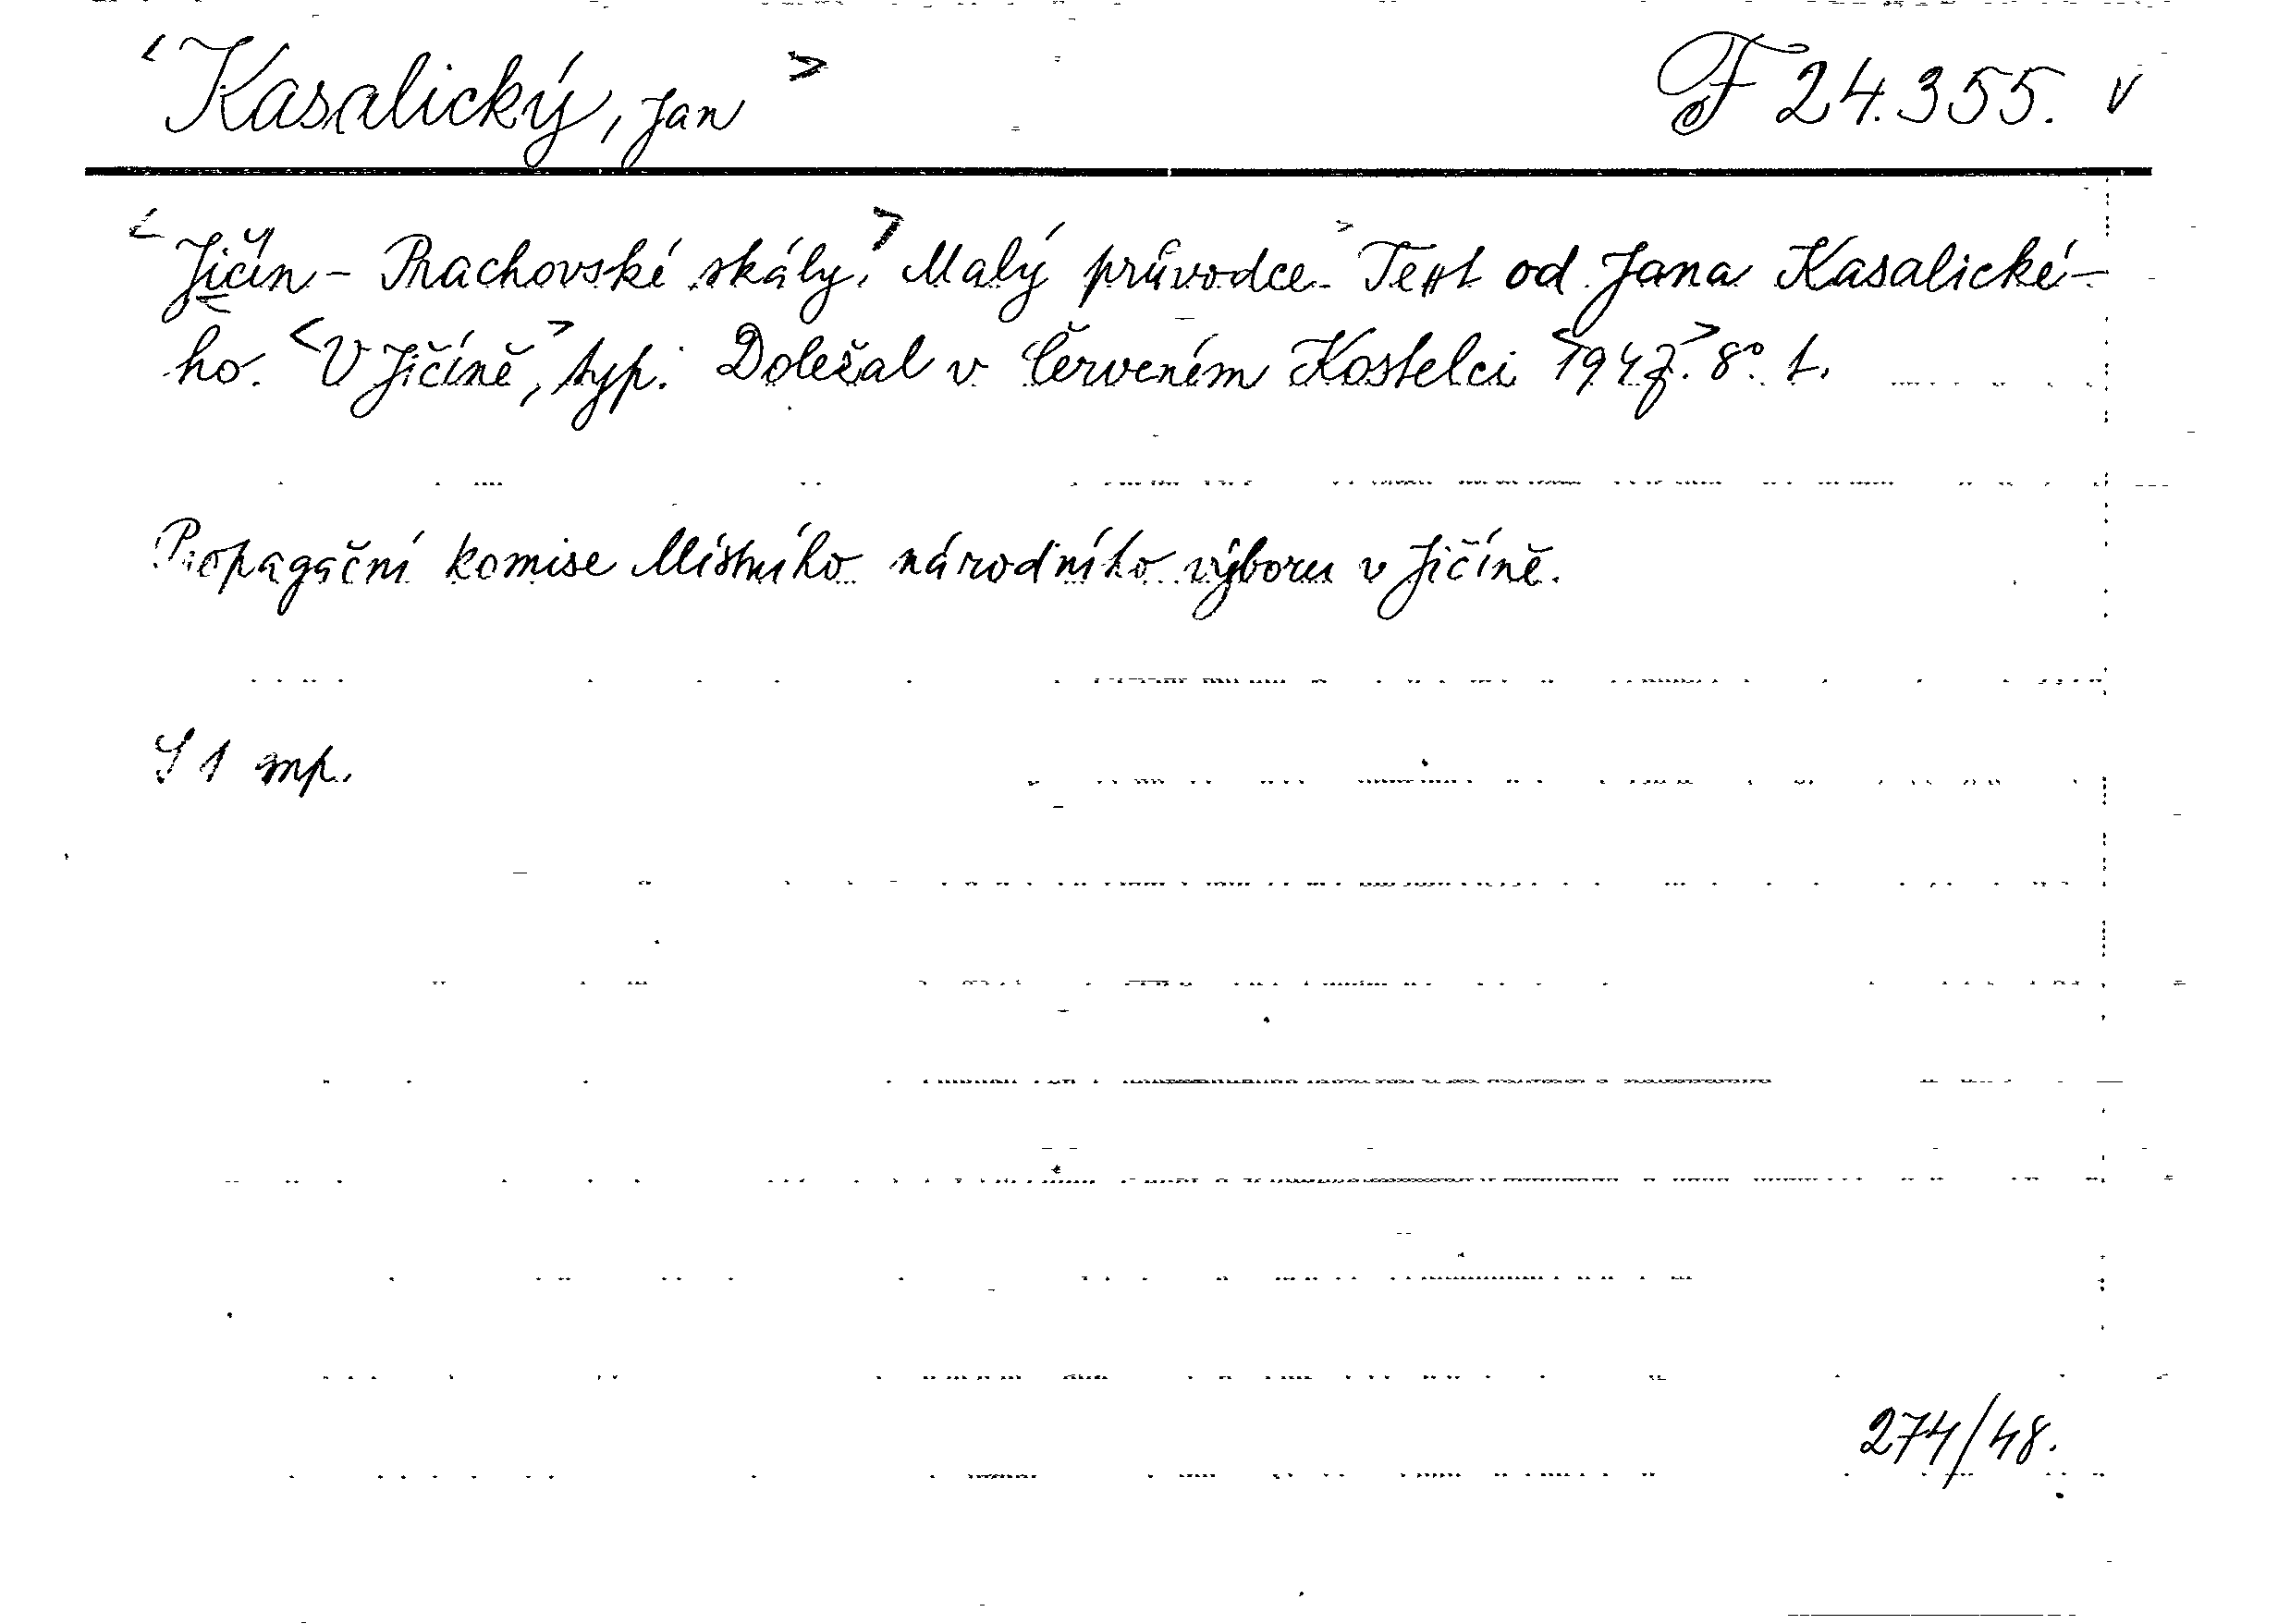 <Kasalický, Jan> F 24.355. v
<Jičín - Prachovské skály.> Malý průvodce.> Text od Jana Kasalické-
ho. <V Jičíně,> typ. Doležal v Červeném Kostelci <1947.> 8°. t.
Propagační komise Místního národního výboru v Jičíně.
S 1 mp.
274/48.